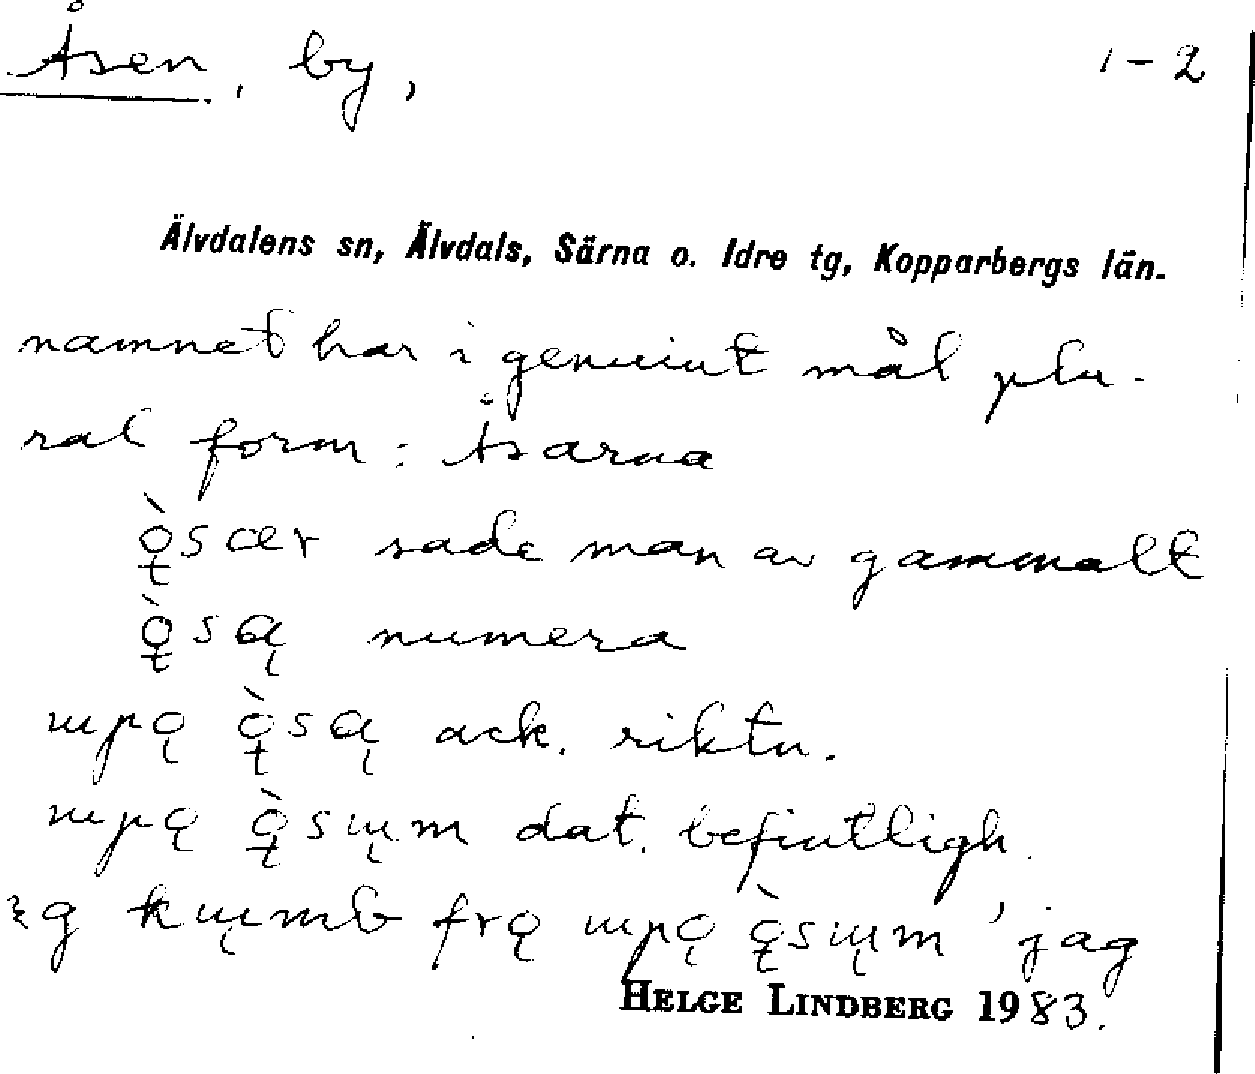 Åsen, by, 1-2
Älvdalens sn, Älvdals, Särna o. Idre tg, Kopparbergs län.
namnet har i genuint mål plu-
ral form: Åsarna
ǫ̀sær sade man av gammalt
ǫ̀są numera
ɯpǫ ǫ̀są ack. riktn.
ɯpǫ ǫ̀sɯ̨m dat. befintligh.
ɛg kɯ̨mb frǫ ɯpǫ ǫ̀sɯ̨m 'jag
HELGE LINDBERG 1983.